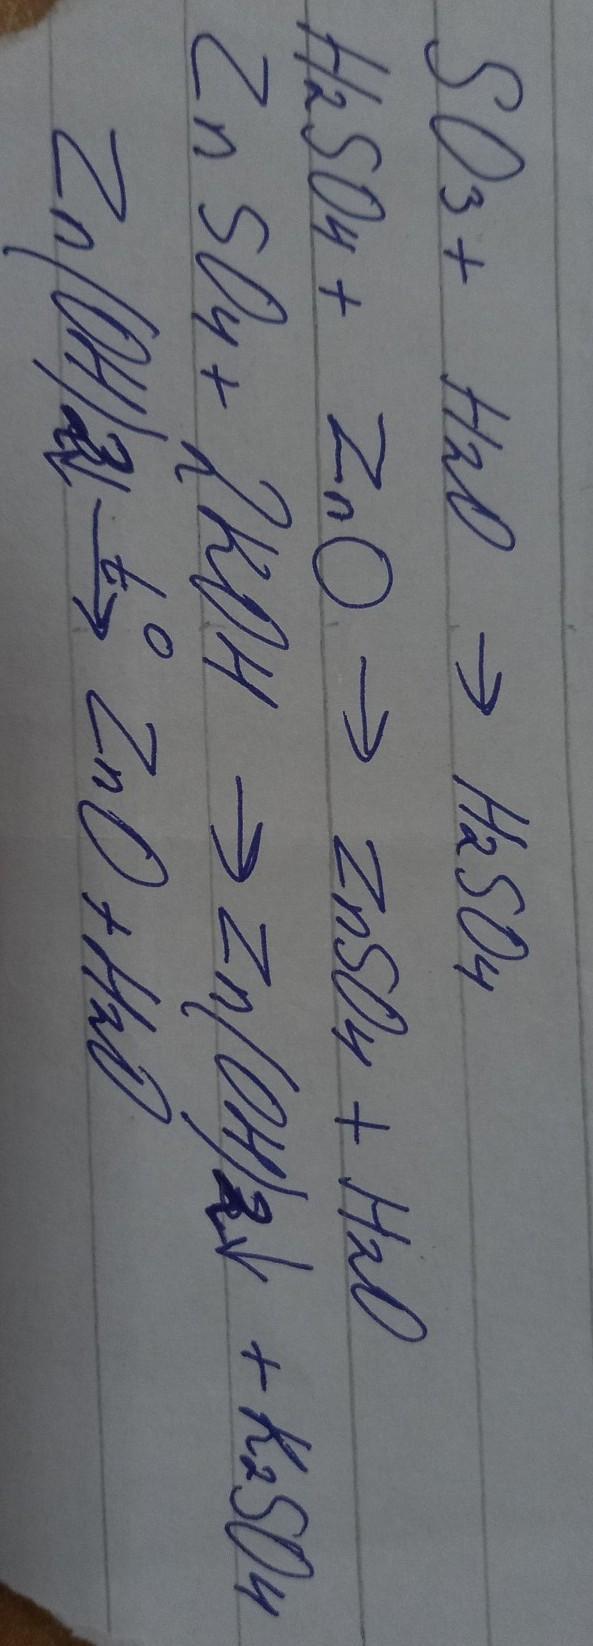 SO3 + H2O → H2SO4
H2SO4 + ZnO → ZnSO4 + H2O
ZnSO4 + 2KOH → Zn(OH)2↓ + K2SO4
Zn(OH)2↓ t°→ ZnO + H2O